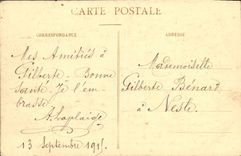 CARTE POSTALE
CORRESPONDANCE
ADRESSE
Mes Amitiés à
Gilberte. Bonne
santé. Je l'em-
brasse
A. Laplaige
13 Septembre 191
Mademoiselle
Gilberte Bénard
à Nesle